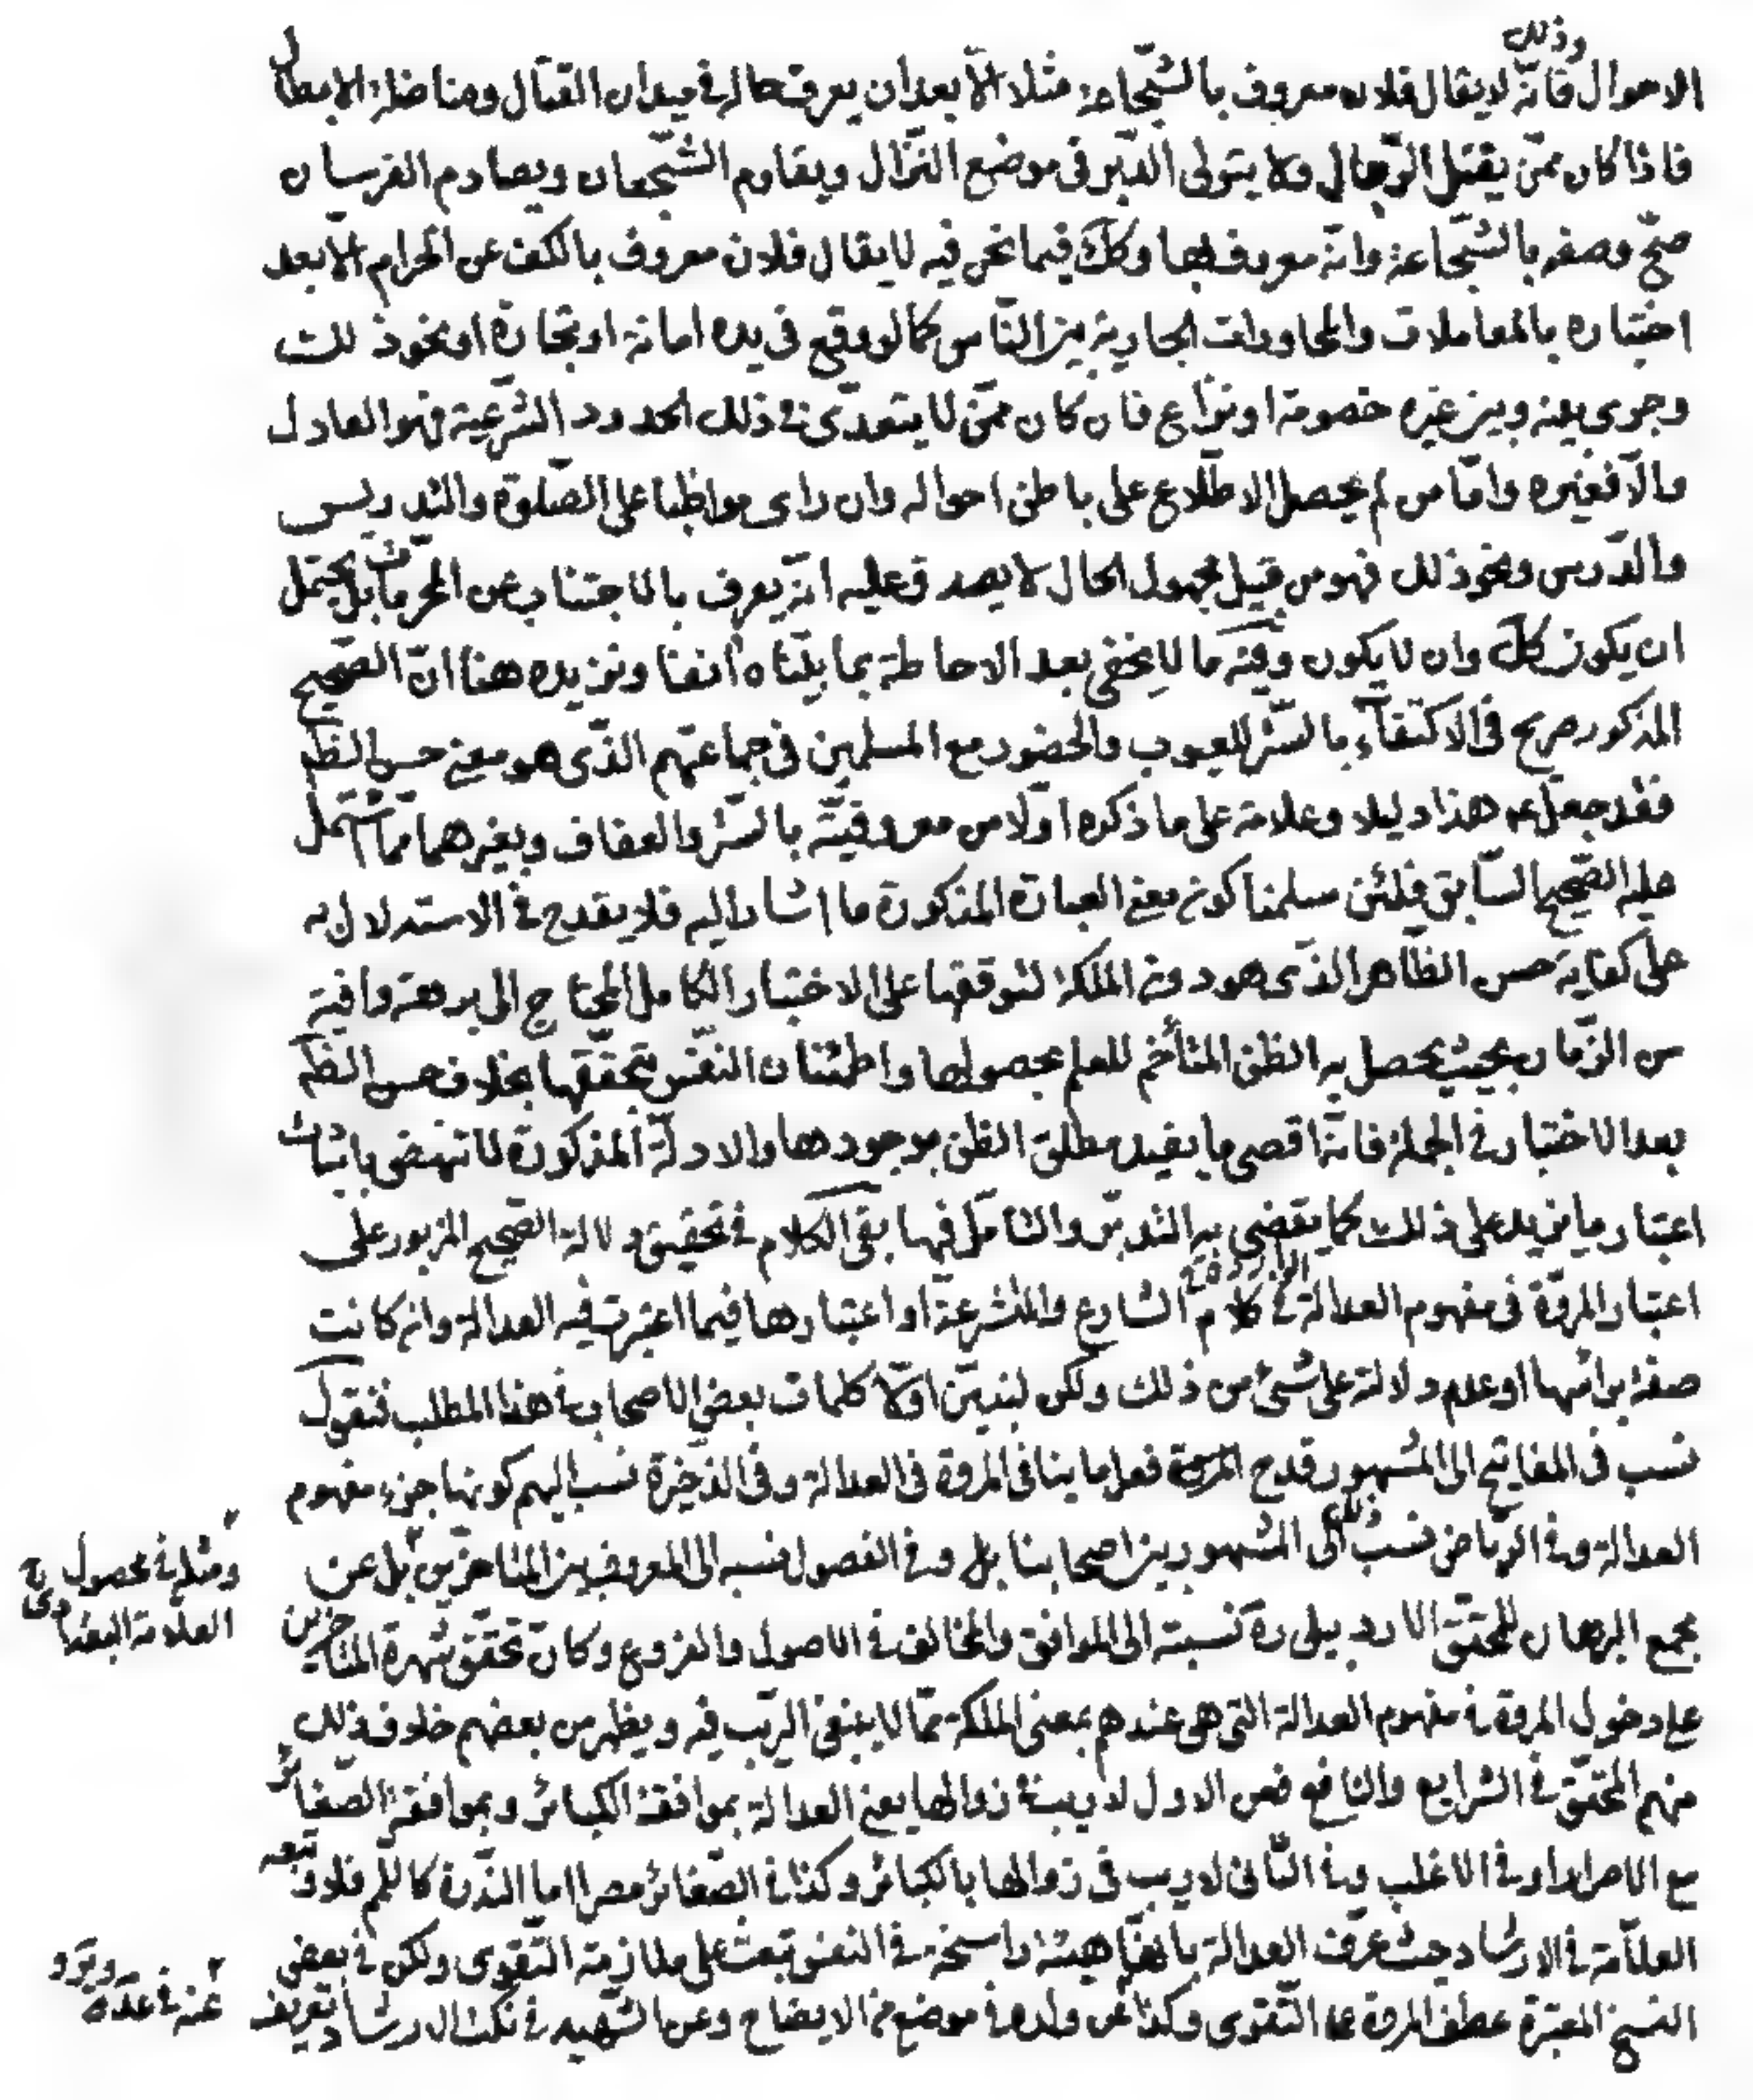 الاحوال وذلك فانّه لا يقال فلان معروف بالشّجاعة مثلا الّا بعد ان يعرف حاله في ميدان القتال ومناضلة الابطال
فاذا كان ممّن يقتل الرّجال ولا يتولى الدّبر فى موضع النّزال ويقاوم الشّجعان ويصادم الفرسان
صحّ وصفه بالشّجاعة وانّه معروف بها وكك فيما نحن فيه لا يقال فلان معروف بالكف عن الحرام الّا بعد
اختباره بالمعاملات والمحاورات الجارية بين النّاس كما لو وقع فى يده امانة او تجارة او نحو ذلك
وجرى بينه وبين غيره خصومة او نزاع فان كان ممّن لا يتعدّى في ذلك الحدود الشّرعيّة فهو العادل
والّا فغيره وامّا من لم يحصل الاطّلاع على باطن احواله وان راى مواظبا على الصّلوة والتدريس
والدّرس ونحو ذلك فهو من قبيل مجهول الحال لا يصدق عليه انّه يعرف بالاجتناب عن المحرمات بل يحتمل
ان يكون كك وان لا يكون وفيه ما لا يخفى بعد الاحاطة بما بيّناه آنفا ونزيده هنا انّ الصّحيح
المذكور صريح فى الاكتفاء بالسّتر للعيوب والحضور مع المسلمين فى جماعتهم الذّى هو معنى حسن الظّم
فقد جعل ع هذا دليلا وعلامة على ما ذكره اوّلا من معروفيّة بالسّتر والعفاف وبغيرهما ممّا اشتمل
عليه الصّحيح السّابق فلئن سلمنا كون معنى العبارة المذكورة ما اشار اليه فلا يقدح في الاستدلال به
على كفاية حسن الظّاهر الذّى هو دون الملكة لتوقفها على الاختبار الكامل المحتاج الى برهة وافية
من الزّمان بحيث يحصل به الظن المتأخم للعلم بحصولها واطمئنان النفّس بتحقّقها بخلاف حسن الظّم
بعد الاختبار في الجملة فانّه اقصى ما يفيد مطلق الظن بوجودها والادلّة المذكورة لا تنهض باثبات
اعتبار ما يزيد على ذلك كما يقضى به التدبّر والتامّل فيها بقى الكلام في تحقيق دلالة الصّحيح المزبور على
اعتبار المروّة فى مفهوم العدالة الواردة في كلام الشارع والمتشرعة او اعتبارها فيما اعتبرت فيه العدالة وان كانت
صفة براسها او عدم دلالة على شئ من ذلك ولكن لنبيّن اوّلا كلمات بعض الاصحاب في هذا المطلب فنقول
نسب فى المفاتيح الى المشهور قدح فعل ما ينافى المروة فى العدالة وفى الذخيرة نسب اليهم كونها جزء مفهوم
العدالة وفي الرّياض نسب ذلك الى المشهور بين اصحابنا بل وفي الفصول نسبه الى المعروف بين المتاخرين بل عن
ومثله في محصول
العلّامة البغدادى
مجمع البرهان للمحقق الاردبيلى ره نسبته الى الموافق والمخالف في الاصول والفروع وكان تحقق شهرة المتاخرين
على دخول المروة في مفهوم العدالة التى هى عندهم بمعنى الملكة ممّا لا ينبغى الرّيب فيه ويظهر من بعضهم خلاف ذلك
منهم المحقّق في الشرايع والنافع فمن الاول لا ريب في زوالها يعنى العدالة بمواقعة الكبائر وبمواقعة الصّغائر
مع الاصرار او في الاغلب وفي الثّانى لا ريب فى زوالها بالكبائر وكذا في الصّغائر مصرا اما النّدرة كاللّمم فلا وتبعه
العلّامة في الارشاد حيث عرّف العدالة بانّها هيئة راسخة في النفس تبعث على ملازمة التّقوى ولكن في بعض
النسخ المعتبرة عطف المروة على التّقوى وكذا عن ولده في موضع من الايضاح وعن الشّهيد في نكت الارشاد تعريف
عنه في عدّة